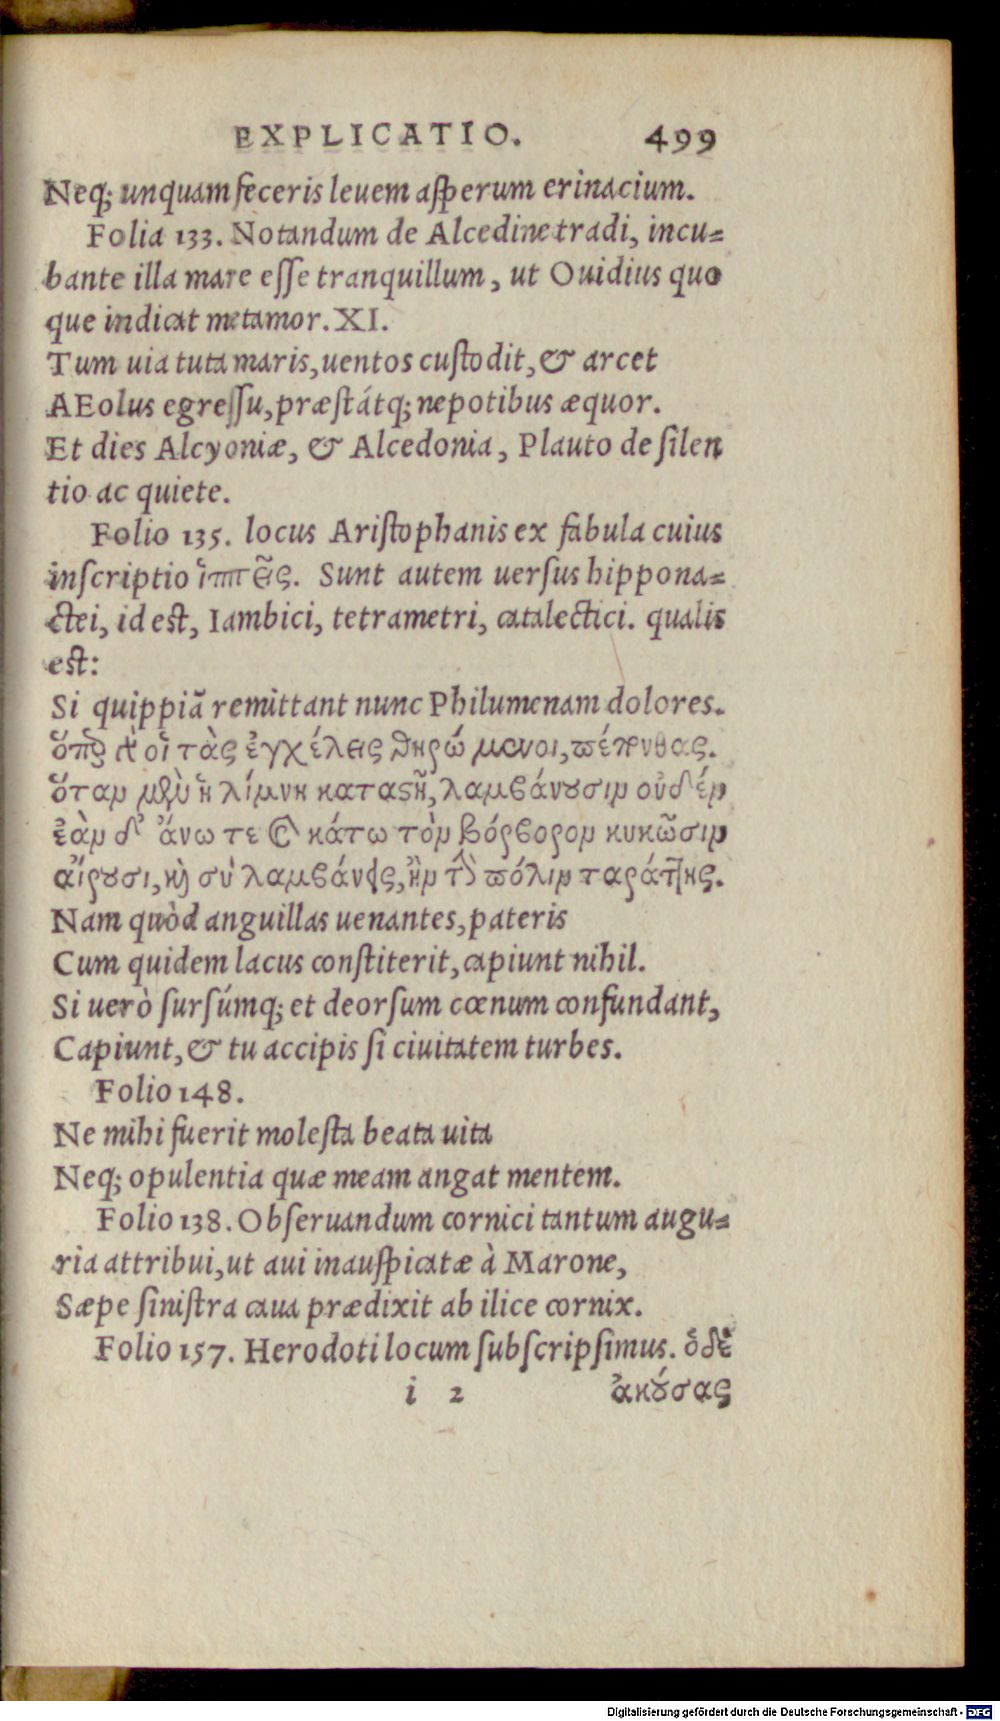 EXPLICATIO. 499
Neq; unquam feceris leuem asperum erinacium.
Folia 133. Notandum de Alcedine tradi, incu-
bante illa mare esse tranquillum, ut Ouidius quo
que indicat metamor. XI.
Tum uia tuta maris, uentos custodit, & arcet
AEolus egressu, præstátq; nepotibus æquor.
Et dies Alcyoniæ, & Alcedonia, Plauto de silen
tio ac quiete.
Folio 135. locus Aristophanis ex fabula cuius
inscriptio ἱππεῖς. Sunt autem uersus hippona-
ctei, id est, Iambici, tetrametri, catalectici. qualis
est:
Si quippiã remittant nunc Philumenam dolores.
ὅπερ γὰρ οἱ τὰς ἐγχέλεις θηρώμενοι, πέπονθας.
ὅταν μὲν ἡ λίμνη καταστῇ, λαμβάνουσιν οὐδέν
ἐὰν δ' ἄνω τε καὶ κάτω τὸν βόρβορον κυκῶσιν
αἵρουσι, καὶ σὺ λαμβάνεις, ἢν τὴν πόλιν ταράττης.
Nam quòd anguillas uenantes, pateris
Cum quidem lacus constiterit, capiunt nihil.
Si uerò sursúmq; et deorsum cœnum confundant,
Capiunt, & tu accipis si ciuitatem turbes.
Folio 148.
Ne mihi fuerit molesta beata uita
Neq; opulentia quæ meam angat mentem.
Folio 138. Obseruandum cornici tantum augu-
ria attribui, ut aui inauspicatæ à Marone,
Sæpe sinistra caua prædixit ab ilice cornix.
Folio 157. Herodoti locum subscripsimus. ὁ δὲ
i 2 ἀκούσας
Digitalisierung gefördert durch die Deutsche Forschungsgemeinschaft - DFG